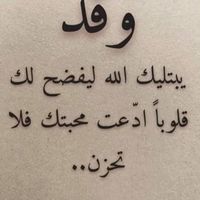 وقد
يبتليك الله ليفضح لك
قلوباً ادّعت محبتك فلا
تحزن..